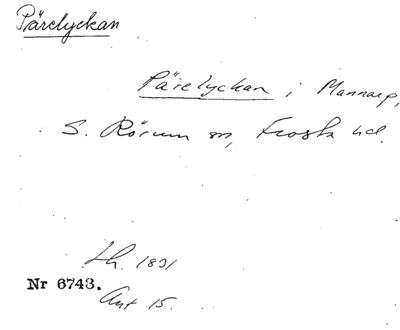 Pärelyckan
Pärelyckan i Mannarp,
S. Rörum sn, Frosta hd.
Lh. 1831
Nr 6743.
Akt 15.